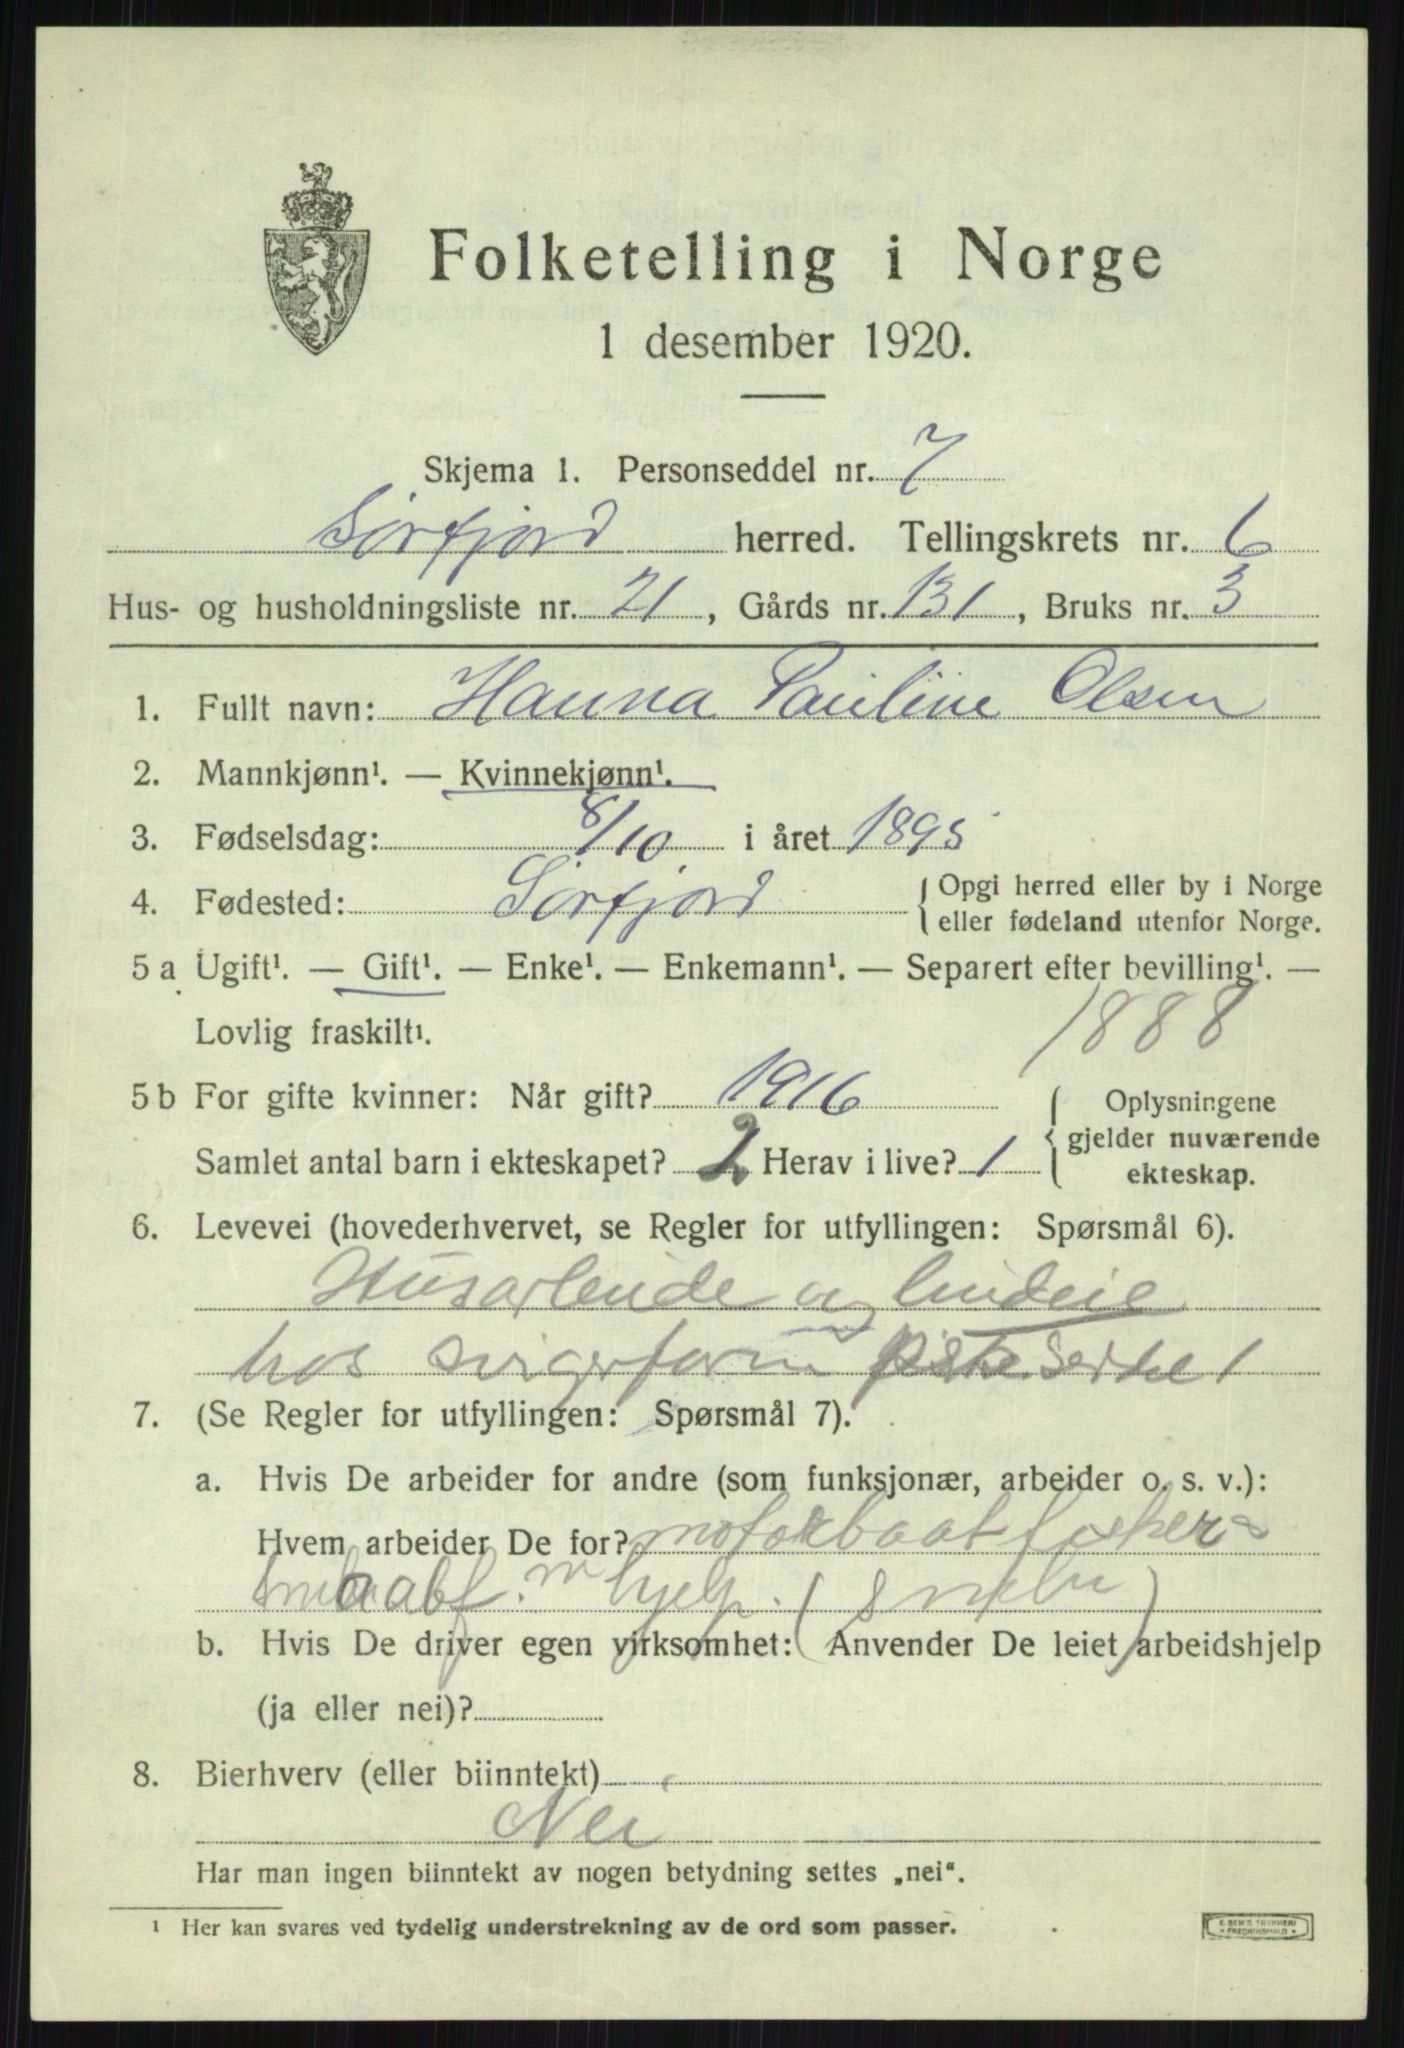 Folketelling i Norge
1 desember 1920.
Skjema 1. Personseddel nr. 7
Sørfjord herred. Tellingskrets nr. 6
Hus- og husholdningsliste nr. 21, Gårds nr. 131, Bruks nr. 3
1. Fullt navn: Hanna Pauline Olsen
2. Mannkjønn¹. — Kvinnekjønn¹.
3. Fødselsdag: 8/10 i året 1895
4. Fødested: Sørfjord { Opgi herred eller by i Norge
eller fødeland utenfor Norge.
5 a Ugift¹. — Gift¹. — Enke¹. — Enkemann¹. — Separert efter bevilling¹. —
Lovlig fraskilt¹. 1888
5 b For gifte kvinner: Når gift? 1916
Samlet antal barn i ekteskapet? 2 Herav i live? 1
{ Oplysningene
gjelder nuværende
ekteskap.
6. Levevei (hovederhvervet, se Regler for utfyllingen: Spørsmål 6).
Husarbeide og
hos
7. (Se Regler for utfyllingen: Spørsmål 7).
a. Hvis De arbeider for andre (som funksjonær, arbeider o. s. v.):
Hvem arbeider De for? motorbaat fisker
hjelp.
b. Hvis De driver egen virksomhet: Anvender De leiet arbeidshjelp
(ja eller nei)?
8. Bierhverv (eller biinntekt)
Nei
Har man ingen biinntekt av nogen betydning settes „nei“.
¹ Her kan svares ved tydelig understrekning av de ord som passer.